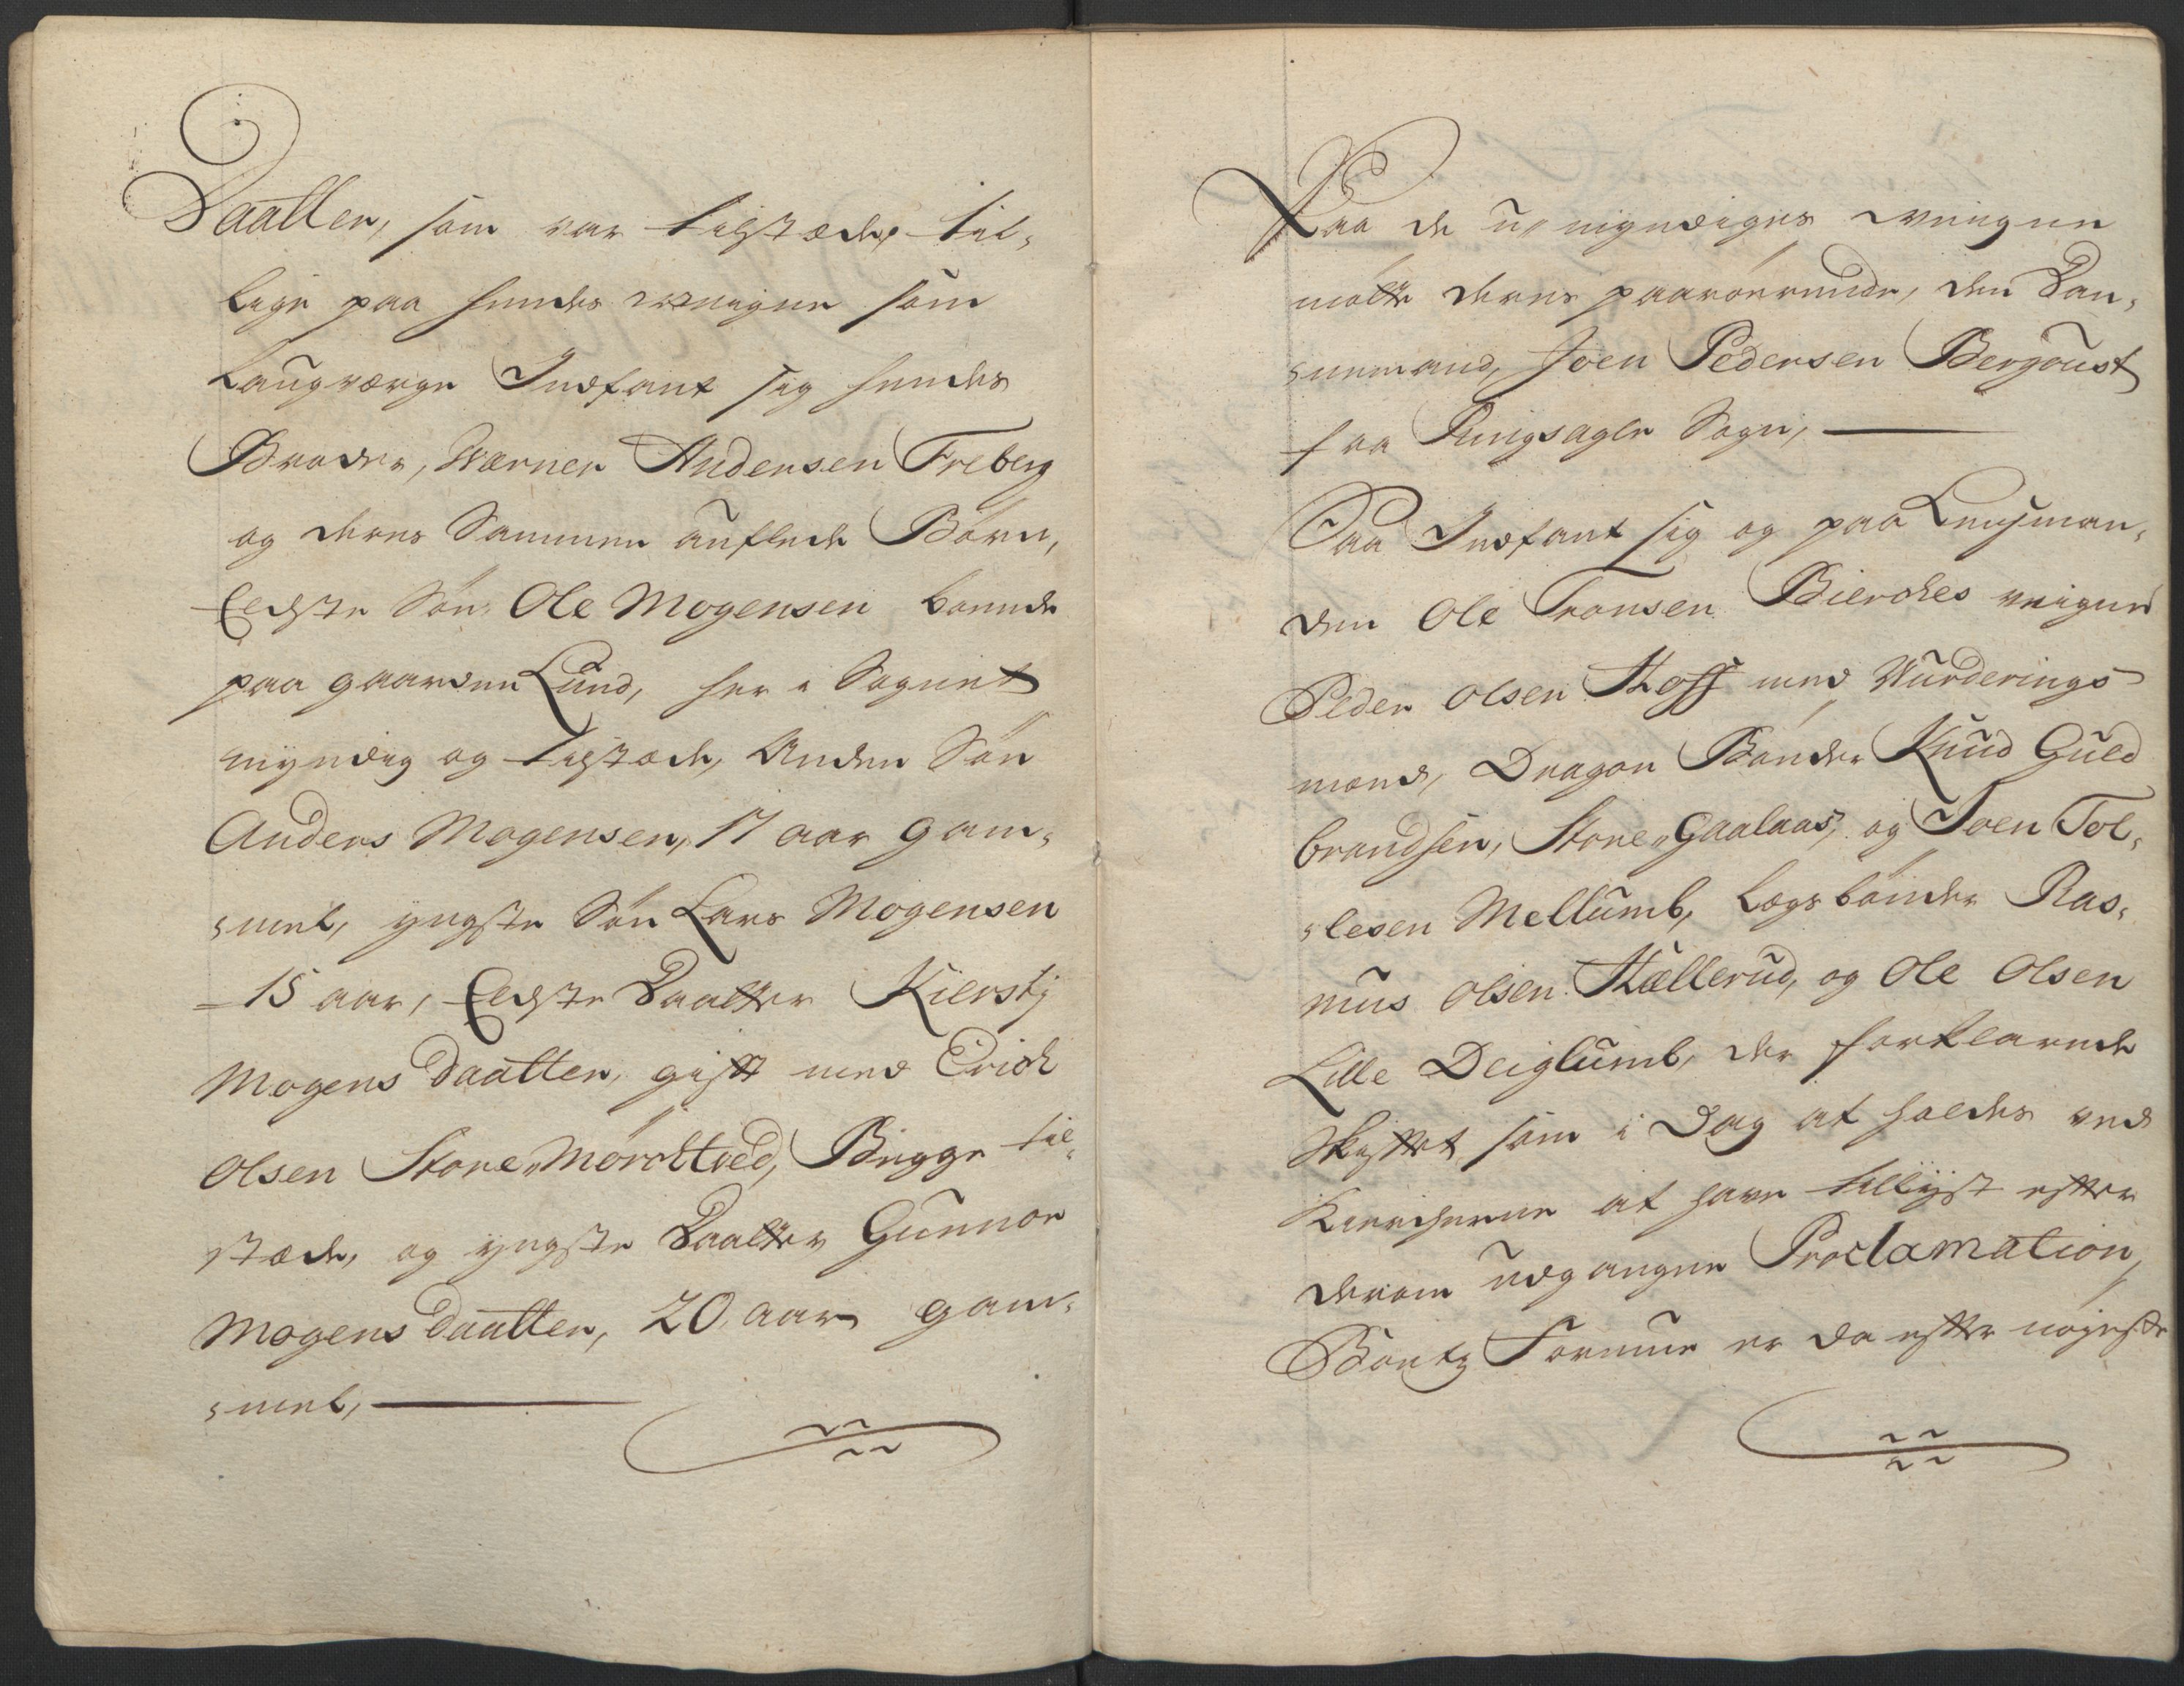 Daatter, som var tilstæde, til,
lige paa hendes veigne som
Laugværge Indfant sig hendes
Broder, Værner Andersen Freberg
og deres Sammen auflede Børn,
Eldste Søn Ole Mogensen boende
paa gaarden Lund, her i Sognet
myndig og tilstæde, Anden Søn
Anders Mogensen, 17 aar gam,
,mel, yngste Søn Lars Mogensen
= 15 aar, Eldste Daatter Kiersty
Mogens daatter, gift med Erich
Olsen Store Mørchved, Begge til,
stæde, og yngste Daatter Gunnor
Mogens daatter, 20 aar gam,
,mel,
Paa de u,myndiges veigne
mødte deres paarørende, den Dan,
nemand, Joen Pedersen Bergoust
fra Ringsager Sogn,
Saa Indfant sig og paa Lensman,
den Ole Tronsen Bierches veigne
Peder Olsen Hoff med Vurderings
mænd, Dragon Bønder Knud Guld
brandsen, Store Gaalaas, og Joen Tol,
,lesen Mellumb, Legsbønder Ras,
mus Olsen Kællerud, og Ole Olsen
Lille Deiglumb, der forklarede
Skiftet som i Dag at holdes ved
Kiercherne at have tillyst efter
derom udgangne Proclamation,
Boets Formue er da efter nøjeste